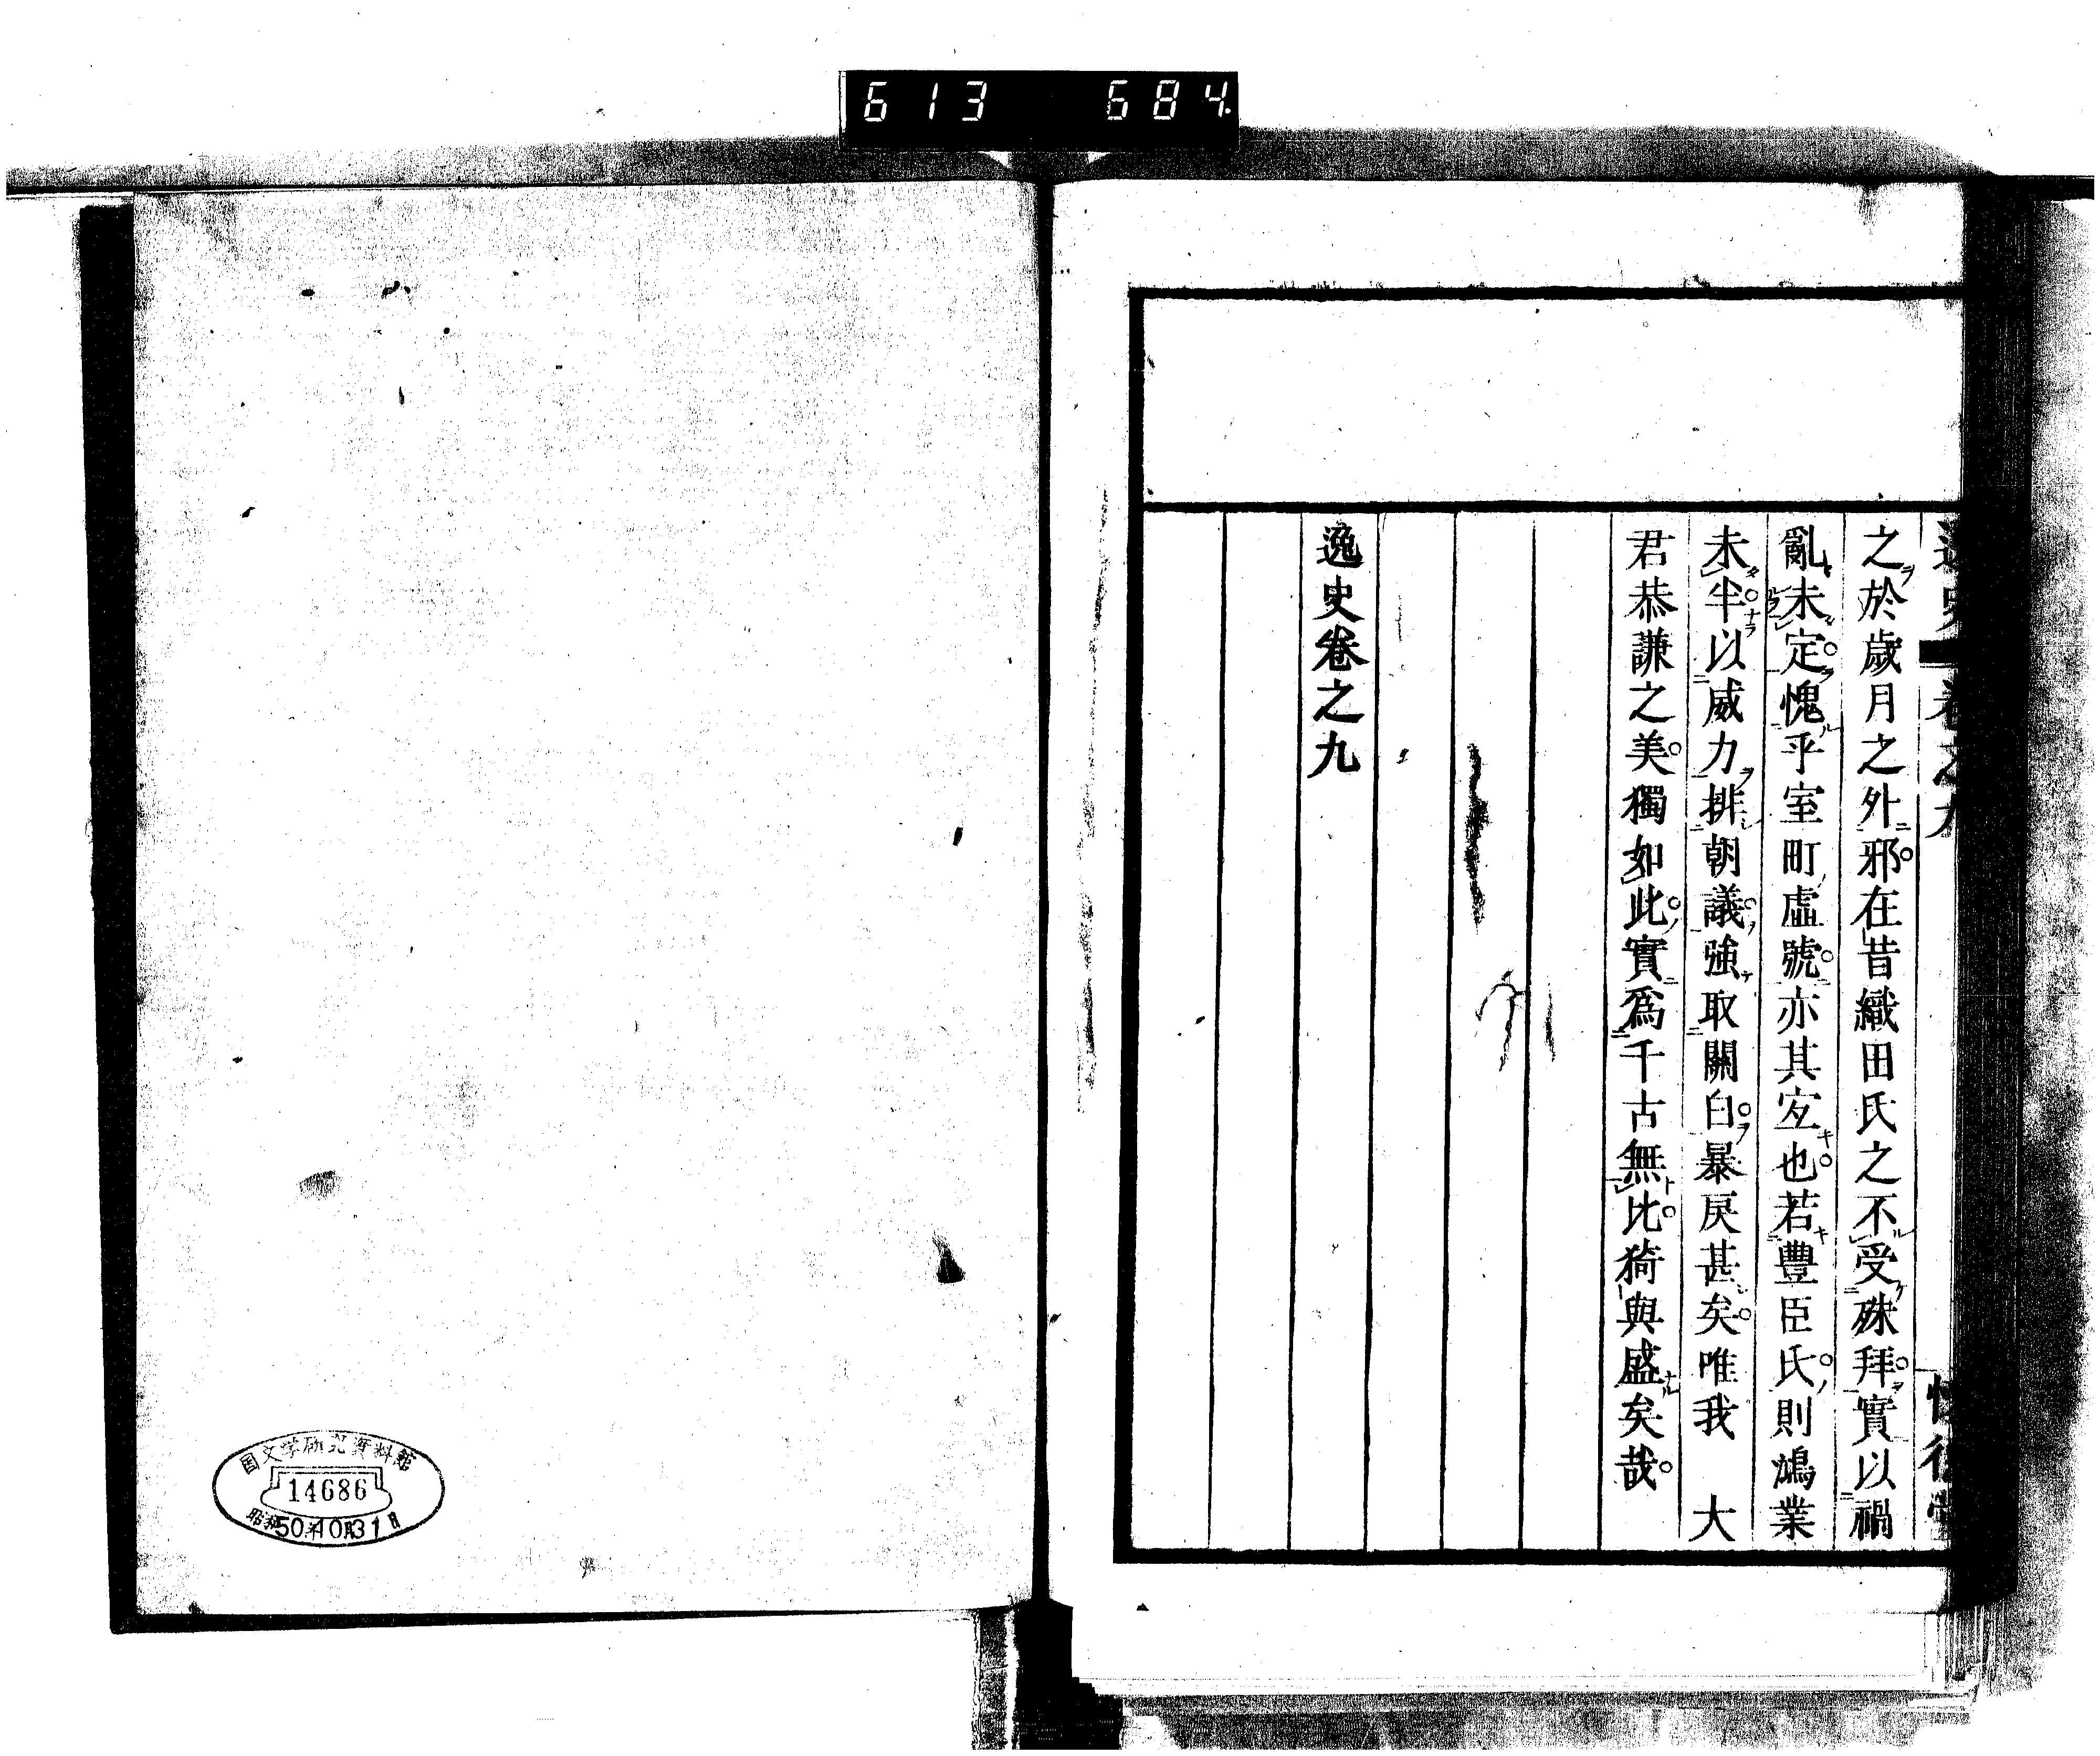 613 684
逸史 卷之九 懷德堂
之於歲月之外邪在昔織田氏之不受殊拜實以禍
亂未定愧乎室町虛號亦其宐也若豐臣氏則鴻業
未半以威力排朝議強取關白暴戾甚矣唯我 大
君恭謙之美獨如此實爲千古無比猗與盛矣哉
逸史卷之九
国文学研究資料館
14686
昭和50年10月31日